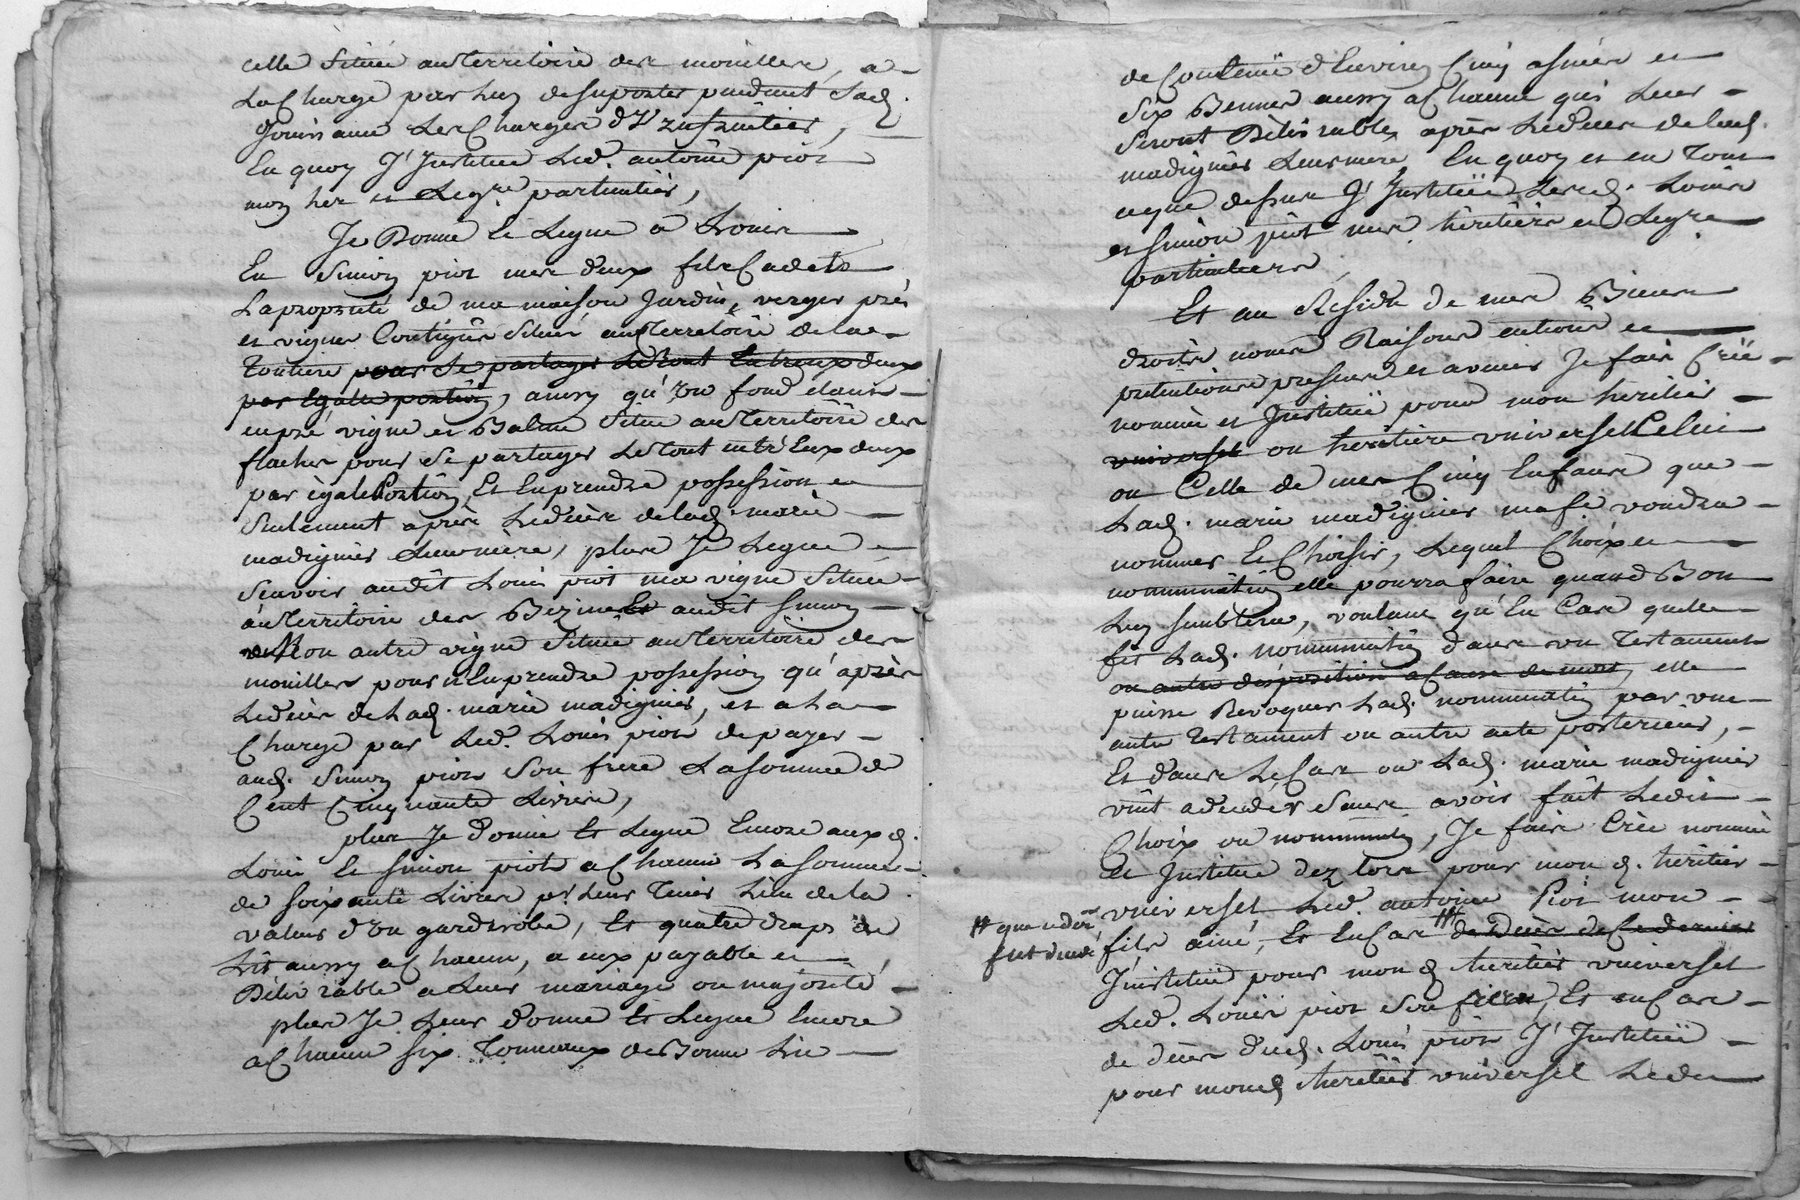 celle située au territoire des mouilles, a
La charge par luy de suporter pendant sad.
Jouissance Les charges d'Uzufruitier,
En quoy J'Institue Led. antoine piot
mon her et Legre particulier,
Je Donne et Legue a Louis
Et Simon piot mes deux fils Cadets
La propriété de ma maison Jardin, verger prés
et vignes Contigus situés au Territoire de la
Toutiere pour se partager Le tout Entreux deux
par Egalle portion, aussy qu'un fond étant
en pré vigne et Balme situé au Territoire des
flaches pour se partager Le tout entr'Eux deux
par égale Portion, Et En prendre possession
seulement après Le décès de lad. marie
madignier Leur mère, plus Je Legue
sçavoir audit Louis piot ma vigne située
au territoire des Bezines Et audit simon
mon autre vigne située au Territoire des
mouilles pour n'En prendre possession qu'après
Le décès de Lad. marie madignier, et a La
Charge par Led. Louis piot de payer
aud. Simon piot son frere La somme de
Cent Cinquante Livres,
plus Je donne Et Legue Encore aux d.
Louis Et simon piot a Chacun La somme
de soixante Livres pr. Leur Tenir Lieu de la
valeur d'un garderobe, Et quatre draps de
Lit aussy a Chacun, a eux payable et
Délivrable a Leur mariage ou majorité
plus Je Leur donne Et Legue Encore
a Chacun six Tonneaux de Bonne Lie
de Contenue d'Environ Cinq asnées et
six Bennes aussy a Chacun qui Leur
seront Délivrables après Le décès de lad.
madignier Leur mere En quoy et en Tout
ce que dessus J'Institue Lesd. Louis
et simon piot mes héritiers et Legre
particuliers,
Et au Résidu de mes Biens
droits noms Raisons actions et
pretentions presents et avenir Je fais Crée
nomme et Institue pour mon heritier
universel ou heritiere universelle Celui
ou Celle de mes Cinq Enfans que
Lad. marie madignier ma fe. voudra
nommer Et Choisir, Lequel Choix et
nomination elle pourra faire quand Bon
Luy semblera, voulant qu'En Cas quelle
fit Lad. nomination dans un Testament
ou autre disposition a Cause de mort, elle
puisse Revoquer Lad. nomination par une
autre Testament ou autre acte posterieur,
Et dans Le Cas ou Lad. marie madignier
vint a deceder sans avoir fait Ledit
Choix ou nomination, Je fais Crée nomme
et Institue dez lors pour mon d. heritier
universel Led. antoine Piot mon
fils ainé, Et En Cas # de Décès de Ce dernier
# que ce der
fut decedé
J'institue pour mon d. heritier universel
Led. Louis piot son frere, Et en Cas
de décès dud. Louis piot J'Institue
pour mond. heritier universel Led.